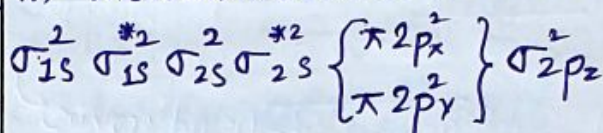 σ1s² σ1s*² σ2s² σ2s*² {π2px² π2py²} σ2pz²